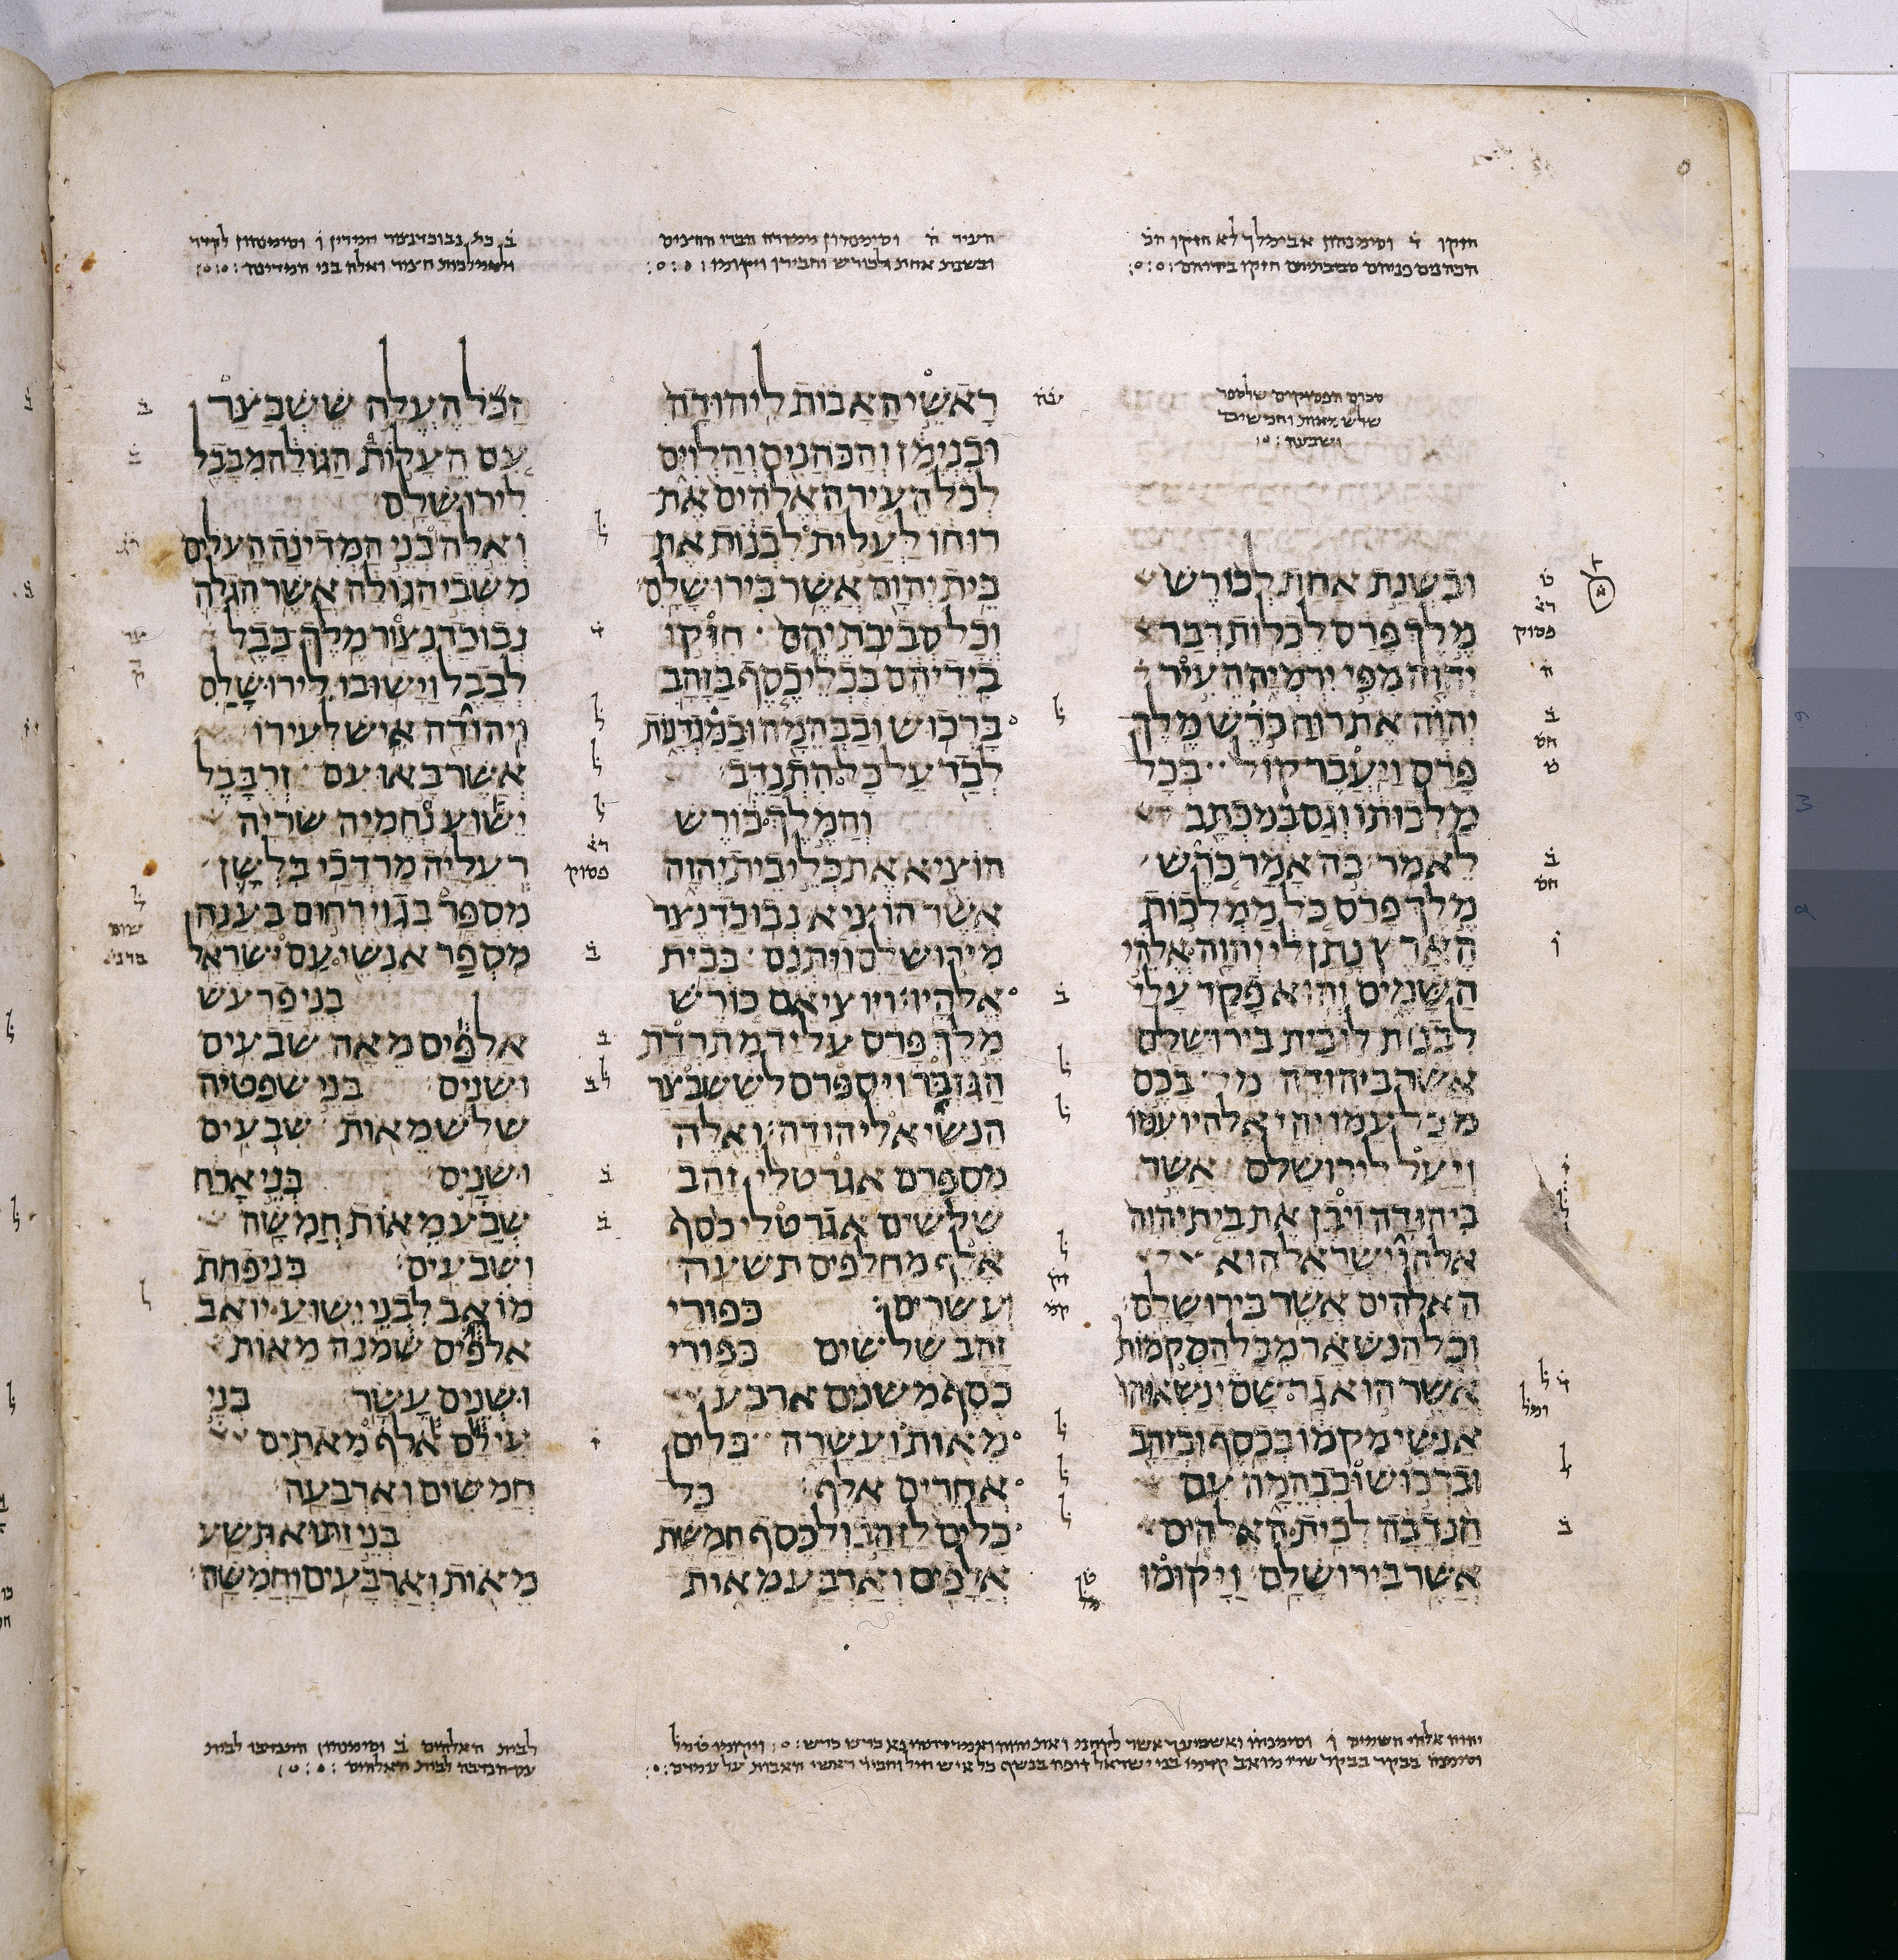 חזקו ד וסימנהון אבימלך לא חזקו
הכהנים סביבתיהם חזקו בידיהם
העיר
ובשנת אחת לכורש ויקומו
ואלה בני המדינה
סכום הפסוקים שלספר
שלש מאות וחמשים
ושבעה
ובשנת אחת לכורש
מלך פרס לכלות דבר
יהוה מפי ירמיה העיר
יהוה את רוח כרש מלך
פרס ויעבר קול בכל
מלכותו וגם במכתב
לאמר כה אמר כרש
מלך פרס כל ממלכות
הארץ נתן לי יהוה אלהי
השמים והוא פקד עלי
לבנות לו בית בירושלם
אשר ביהודה מי בכם
מכל עמו יהי אלהיו עמו
ויעל לירושלם אשר
ביהודה ויבן את בית יהוה
אלהי ישראל הוא
האלהים אשר בירושלם
וכל הנשאר מכל המקמות
אשר הוא גר שם ינשאוהו
אנשי מקמו בכסף ובזהב
וברכוש ובבהמה עם
הנדבה לבית האלהים
אשר בירושלם ויקומו
ראשי האבות ליהודה
ובנימן והכהנים והלוים
לכל העיר האלהים את
רוחו לעלות לבנות את
בית יהוה אשר בירושלם
וכל סביבתיהם חזקו
בידיהם בכלי כסף בזהב
ברכוש ובבהמה ובמגדנות
לבד על כל התנדב
והמלך כורש
הוציא את כלי בית יהוה
אשר הוציא נבוכדנצר
מירושלם ויתנם בבית
אלהיו ויוציאם כורש
מלך פרס על יד מתרדת
הגזבר ויספרם לששבצר
הנשיא ליהודה ואלה
מספרם אגרטלי זהב
שלשים אגרטלי כסף
אלף מחלפים תשעה
ועשרים כפורי
זהב שלשים כפורי
כסף משנים ארבע
מאות ועשרה כלים
אחרים אלף כל
כלים לזהב ולכסף חמשת
אלפים וארבע מאות
הכל העלה ששבצר
עם העלות הגולה מבבל
לירושלם
ואלה בני המדינה העלים
משבי הגולה אשר הגלה
נבוכדנצור מלך בבל
לבבל וישובו לירושלם
ויהודה איש לעירו
אשר באו עם זרבבל
ישוע נחמיה שריה
רעליה מרדכי בלשן
מספר בגוי רחום בענה
מספר אנשי עם ישראל
בני פרעש
אלפים מאה שבעים
ושנים בני שפטיה
שלש מאות שבעים
ושנים בני ארח
שבע מאות חמשה
ושבעים בני פחת
מואב לבני ישוע יואב
אלפים שמנה מאות
ושנים עשר בני
עילם אלף מאתים
חמשים וארבעה
בני זתוא תשע
מאות וארבעים וחמשה
לבית האלהים ב וסימנהון התנדבו לבית
עם הנדבה לבית האלהים